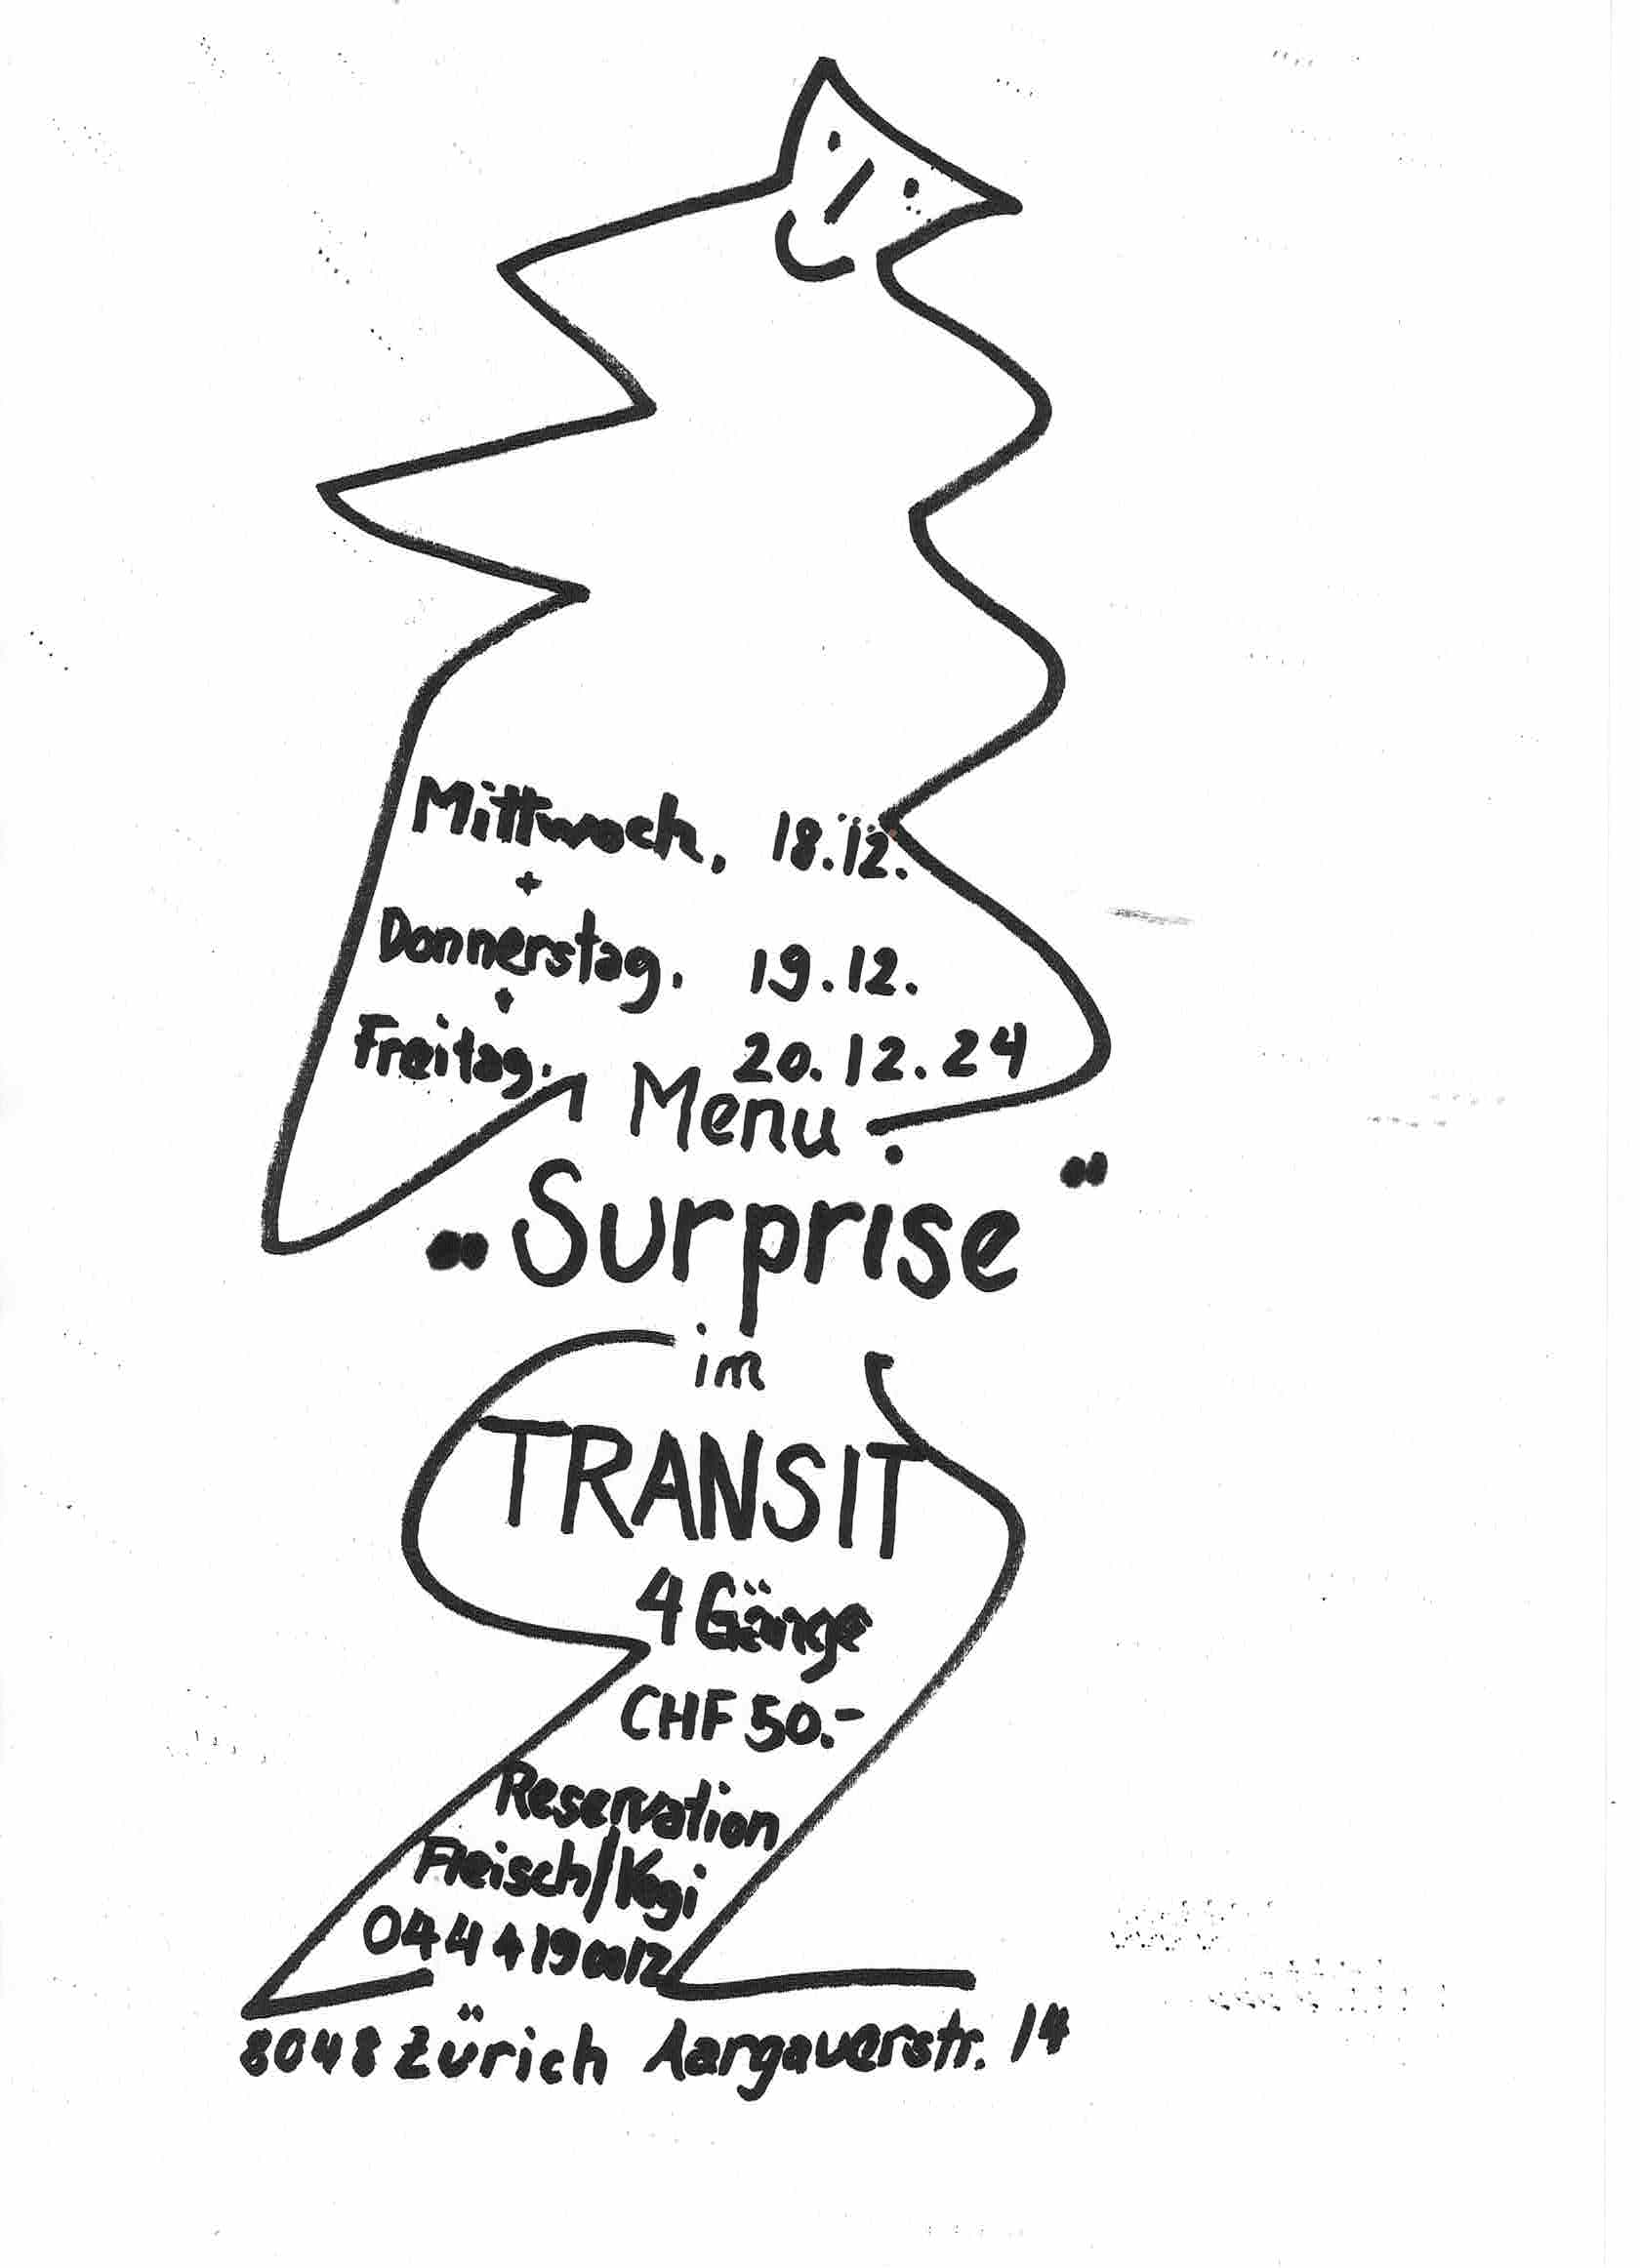 Mittwoch, 18.12.
+
Donnerstag. 19.12.
+
Freitag. 20.12.24
Menu
„Surprise“
im
TRANSIT
4 Gänge
CHF 50.-
Reservation
Fleisch/Vegi
044 419 0012
8048 Zürich Aargauerstr. 14